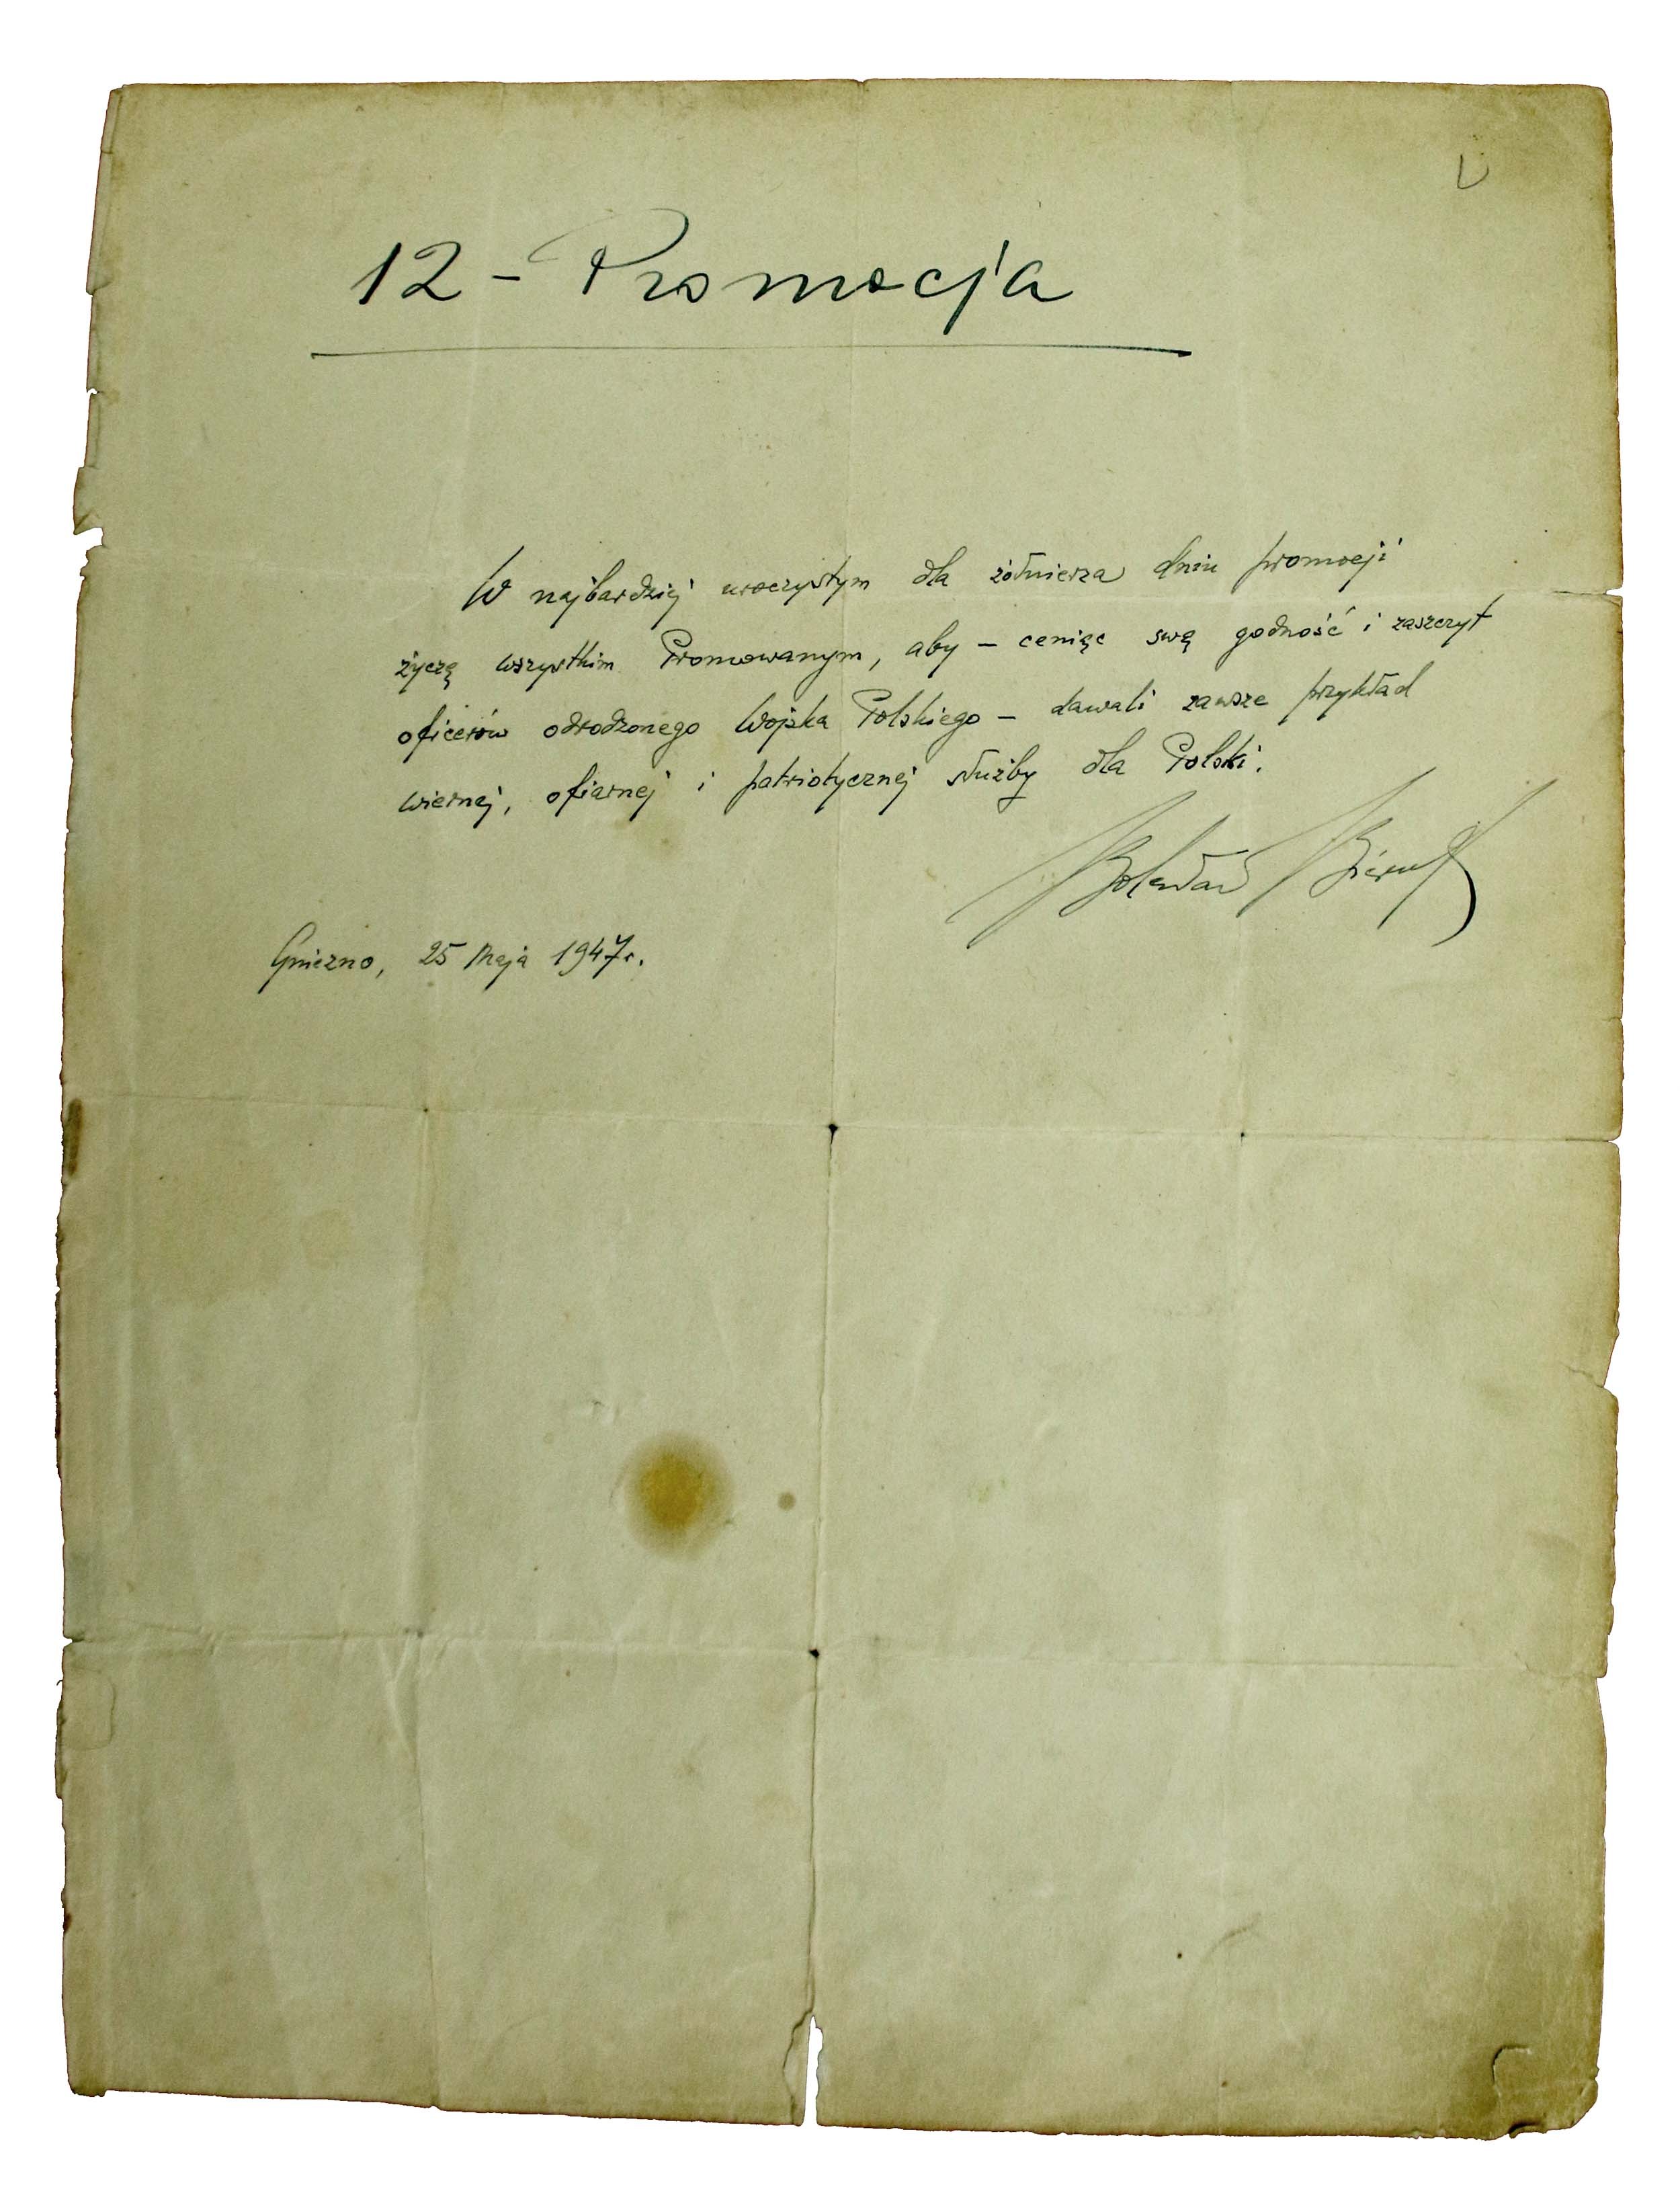 12 - Promocja
W najbardziej uroczystym dla żołnierza dniu promocji
życzę wszystkim Promowanym, aby - ceniąc swą godność i zaszczyt
oficerów odrodzonego Wojska Polskiego - dawali zawsze przykład
wiernej, ofiarnej i patriotycznej służby dla Polski.
Bolesław Bierut
Gniezno, 25 maja 1947r.